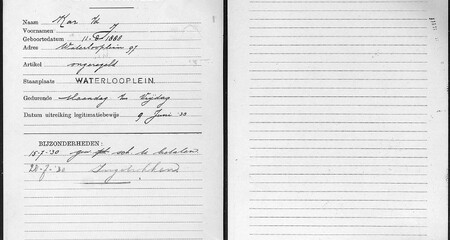 Naam Kar
Voornamen
Geboortedatum
Adres Waterlooplein 97
Artikel ongeregeld
Staanplaats WATERLOOPLEIN.
Gedurende Maandag t/m Vrijdag
Datum uitreiking legitimatiebewijs 9 Juni '30
BIJZONDERHEDEN:
15-7-'30 te betalen
28-7-'30 Ingetrokken